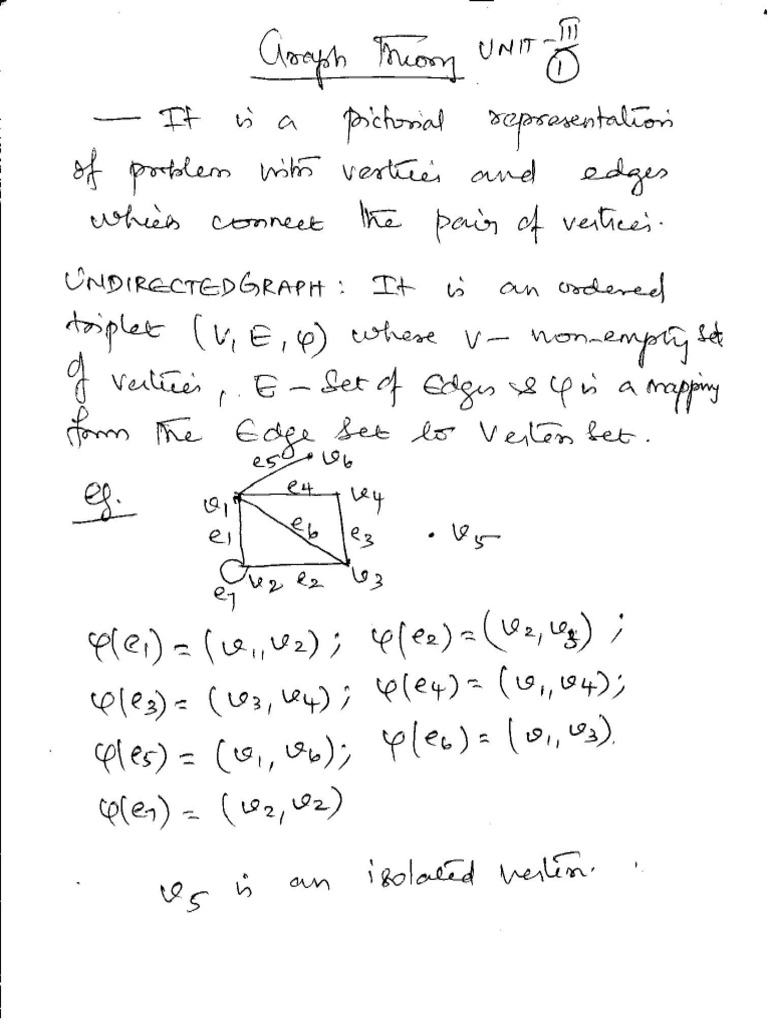 Graph Theory UNIT-III
1
— It is a pictorial representation
of problem with vertices and edges
which connect the pair of vertices.
UNDIRECTEDGRAPH: It is an ordered
triplet (V, E, φ) where V - non-empty set
of vertices, E - Set of Edges & φ is a mapping
form the Edge Set to Vertex Set.
eg.
e5 v6
v1 e4 v4
e1 e6 e3 . v5
e7 v2 e2 v3
φ(e1) = (v1, v2); φ(e2) = (v2, v3);
φ(e3) = (v3, v4); φ(e4) = (v1, v4);
φ(e5) = (v1, v6); φ(e6) = (v1, v3).
φ(e7) = (v2, v2)
v5 is an isolated vertex.